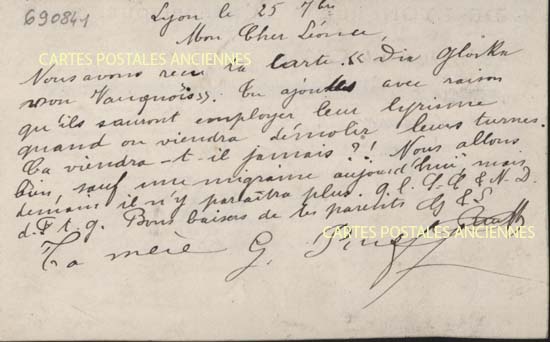 690841
Lyon le 25 7bre
Mon Cher Léonce,
CARTES POSTALES ANCIENNES
Nous avons reçu ta carte « Die Glocke
von Vauquois ». Tu ajoutes avec raison
qu'ils sauront employer leur lyrisme
quand on viendra démolir leurs turnes.
Ça viendra-t-il jamais ?! Nous allons
bien, sauf une migraine aujourd'hui mais
demain il n'y paraîtra plus. q. l. S. C. & N. D.
d. F t. g. Bons baisers de tes parents G & L
CARTES POSTALES ANCIENNES
Ta mère G.